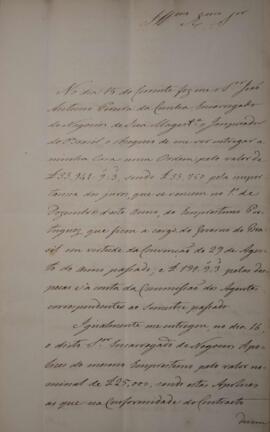 Illmo Exmo Snr
No dia 15 do Corrente fez me o Snr José
Antonio Pereira da Cunha Encarregado
de Negocios de Sua Magest.e o Imperador
do Brasil o Obsequio de me vir entregar a
minha Casa uma Ordem pelo valor de
£33.941.9.3, sendo £33.750 pela impor
tancia dos juros, que se vencem no 1º de
Dezembro deste anno, do Emprestimo Por
tuguez, que ficou a cargo do Governo do Bra
sil em virtude da Convenção de 29 de Agos
to do anno passado, e £191.9.3 pelas des
pezas e a conta da Commissão dos Agentes
correspondentes ao Semestre passado.
Igualmente me entregou no dia 16,
o dito Snr Encarregado de Negocios Apo
lices do mesmo Emprestimo pelo valor no
minal de £25,000, sendo estas Apolices
as que na Conformidade do Contracto